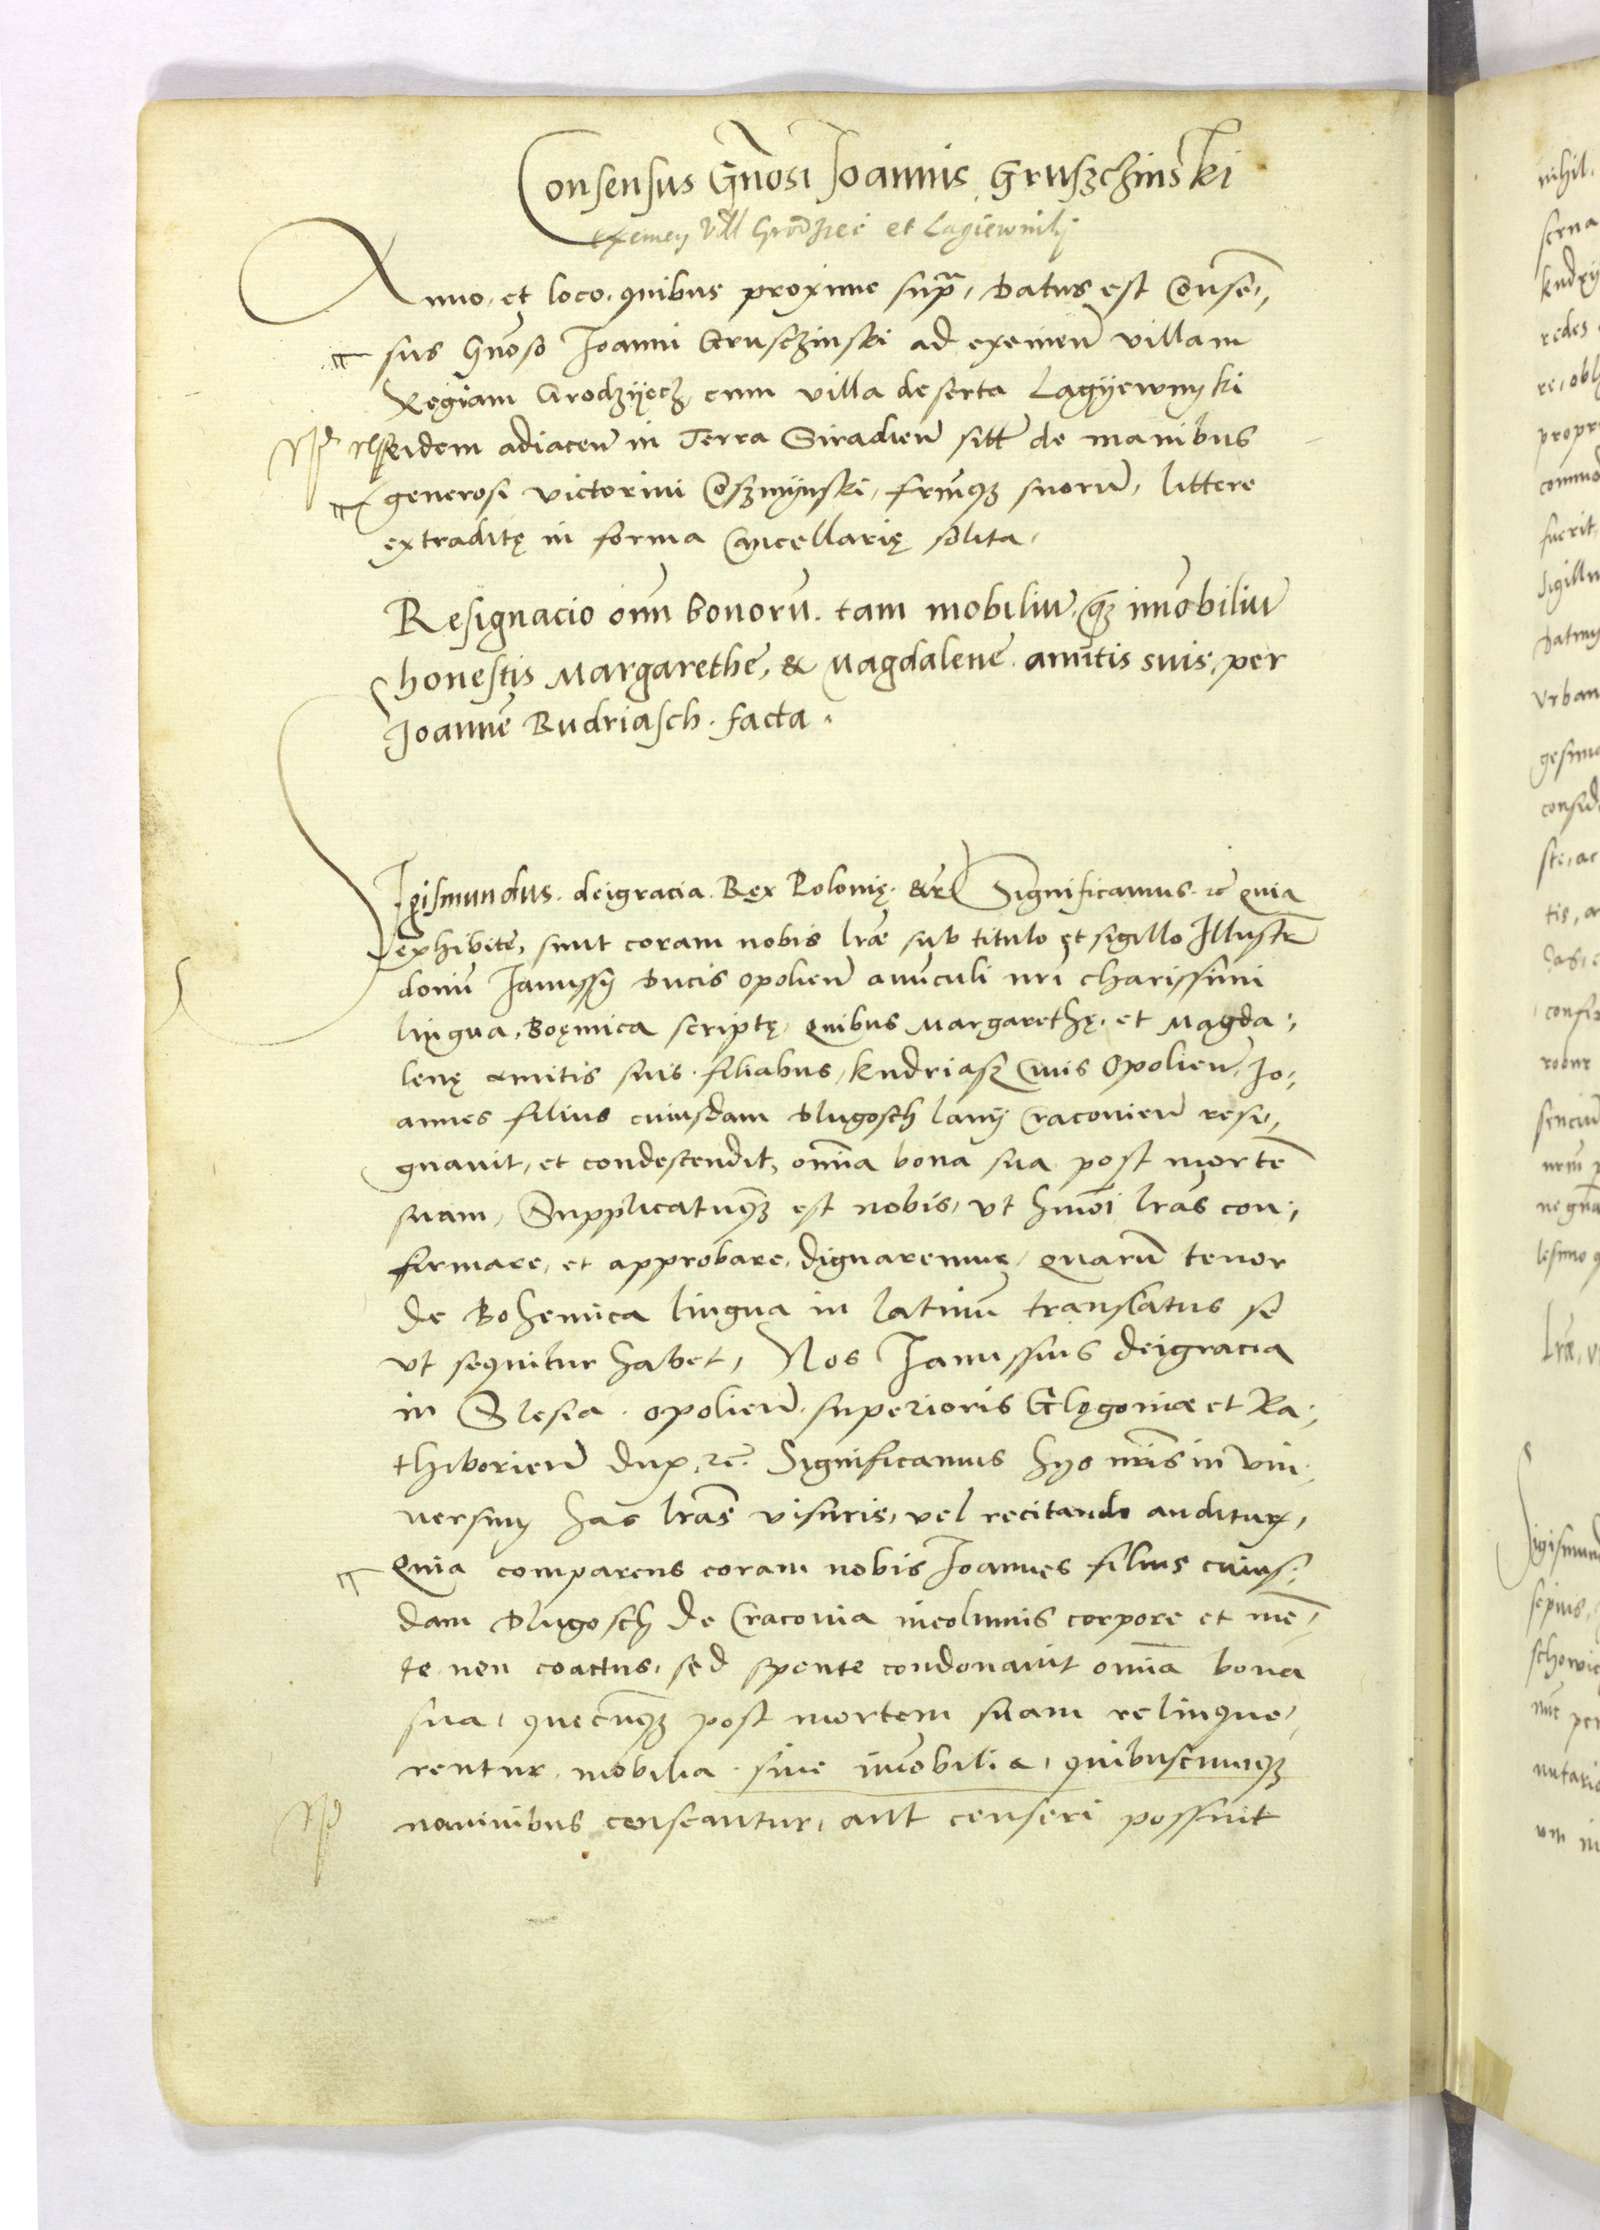 Consensus Gn̄osi Joannis Gruszczinski
exemen Vill Grodziec et Lagiewniki
Anno, et loco, quibus proxime supra, Datus est Consen,
sus Gn̄oso Joanni Gruszczinski ad exemen̄ villam
Regiam Grodzÿecz, cum villa deserta Lagÿewnyki
eidem adiacen̄ in Terra Siradien̄ sitt̄ de manibus
generosi victorini Coszmÿnski, frm̄q3 suorū, littere
extraditę in forma Cancellarię solita,
Resignacio om̄ bonorū. tam mobiliū q̄3 im̄obiliū
honestis Margarethe, & Magdalene amittis suis, per
Joannē Kudriasch. facta.
Sigismundus. deigracia. Rex Polonię. &c̄ Significamus. &c̄ Quia
exhibite, sunt coram nobis lr̄æ sub titulo et sigillo Illustr̄
domī Janussÿ Ducis opolien̄ auunculi nr̄i charissimi
lingua, Boęmica scriptę, quibus Margarethę, et Magda,
lenę amitis suis. filiabus, Kudriasz Ciuis Opolien̄, Jo,
annes filius cuiusdam Dlugosch lanÿ Cracovien̄ resi,
gnauit, et condescendit, om̄ia bona sua post mortē
suam, Supplicatumq3 est nobis, vt hmōi lr̄as con,
firmare, et approbare, dignaremur, quarū tenor
de Bohemica lingua in latinū translatus se
vt sequitur habet, Nos Janussius deigracia
in Slesia. opolien̄. superioris Glogoniæ et Ra,
thiborien̄ dux, &c̄. Significamus hÿs nr̄is in vni,
uersum has lr̄as visuris, vel recitando audituris,
Quia comparens coram nobis Joannes filius cuius,
dam Dlugosch de Cracouia incolumis corpore et mē,
te non coactus, sed sponte condonauit om̄ia bona
sua, quecūq3 post mortem suam relinque,
rentur, mobilia. siue im̄obilia, quibuscunq3
nominibus censeantur, aut censeri possunt